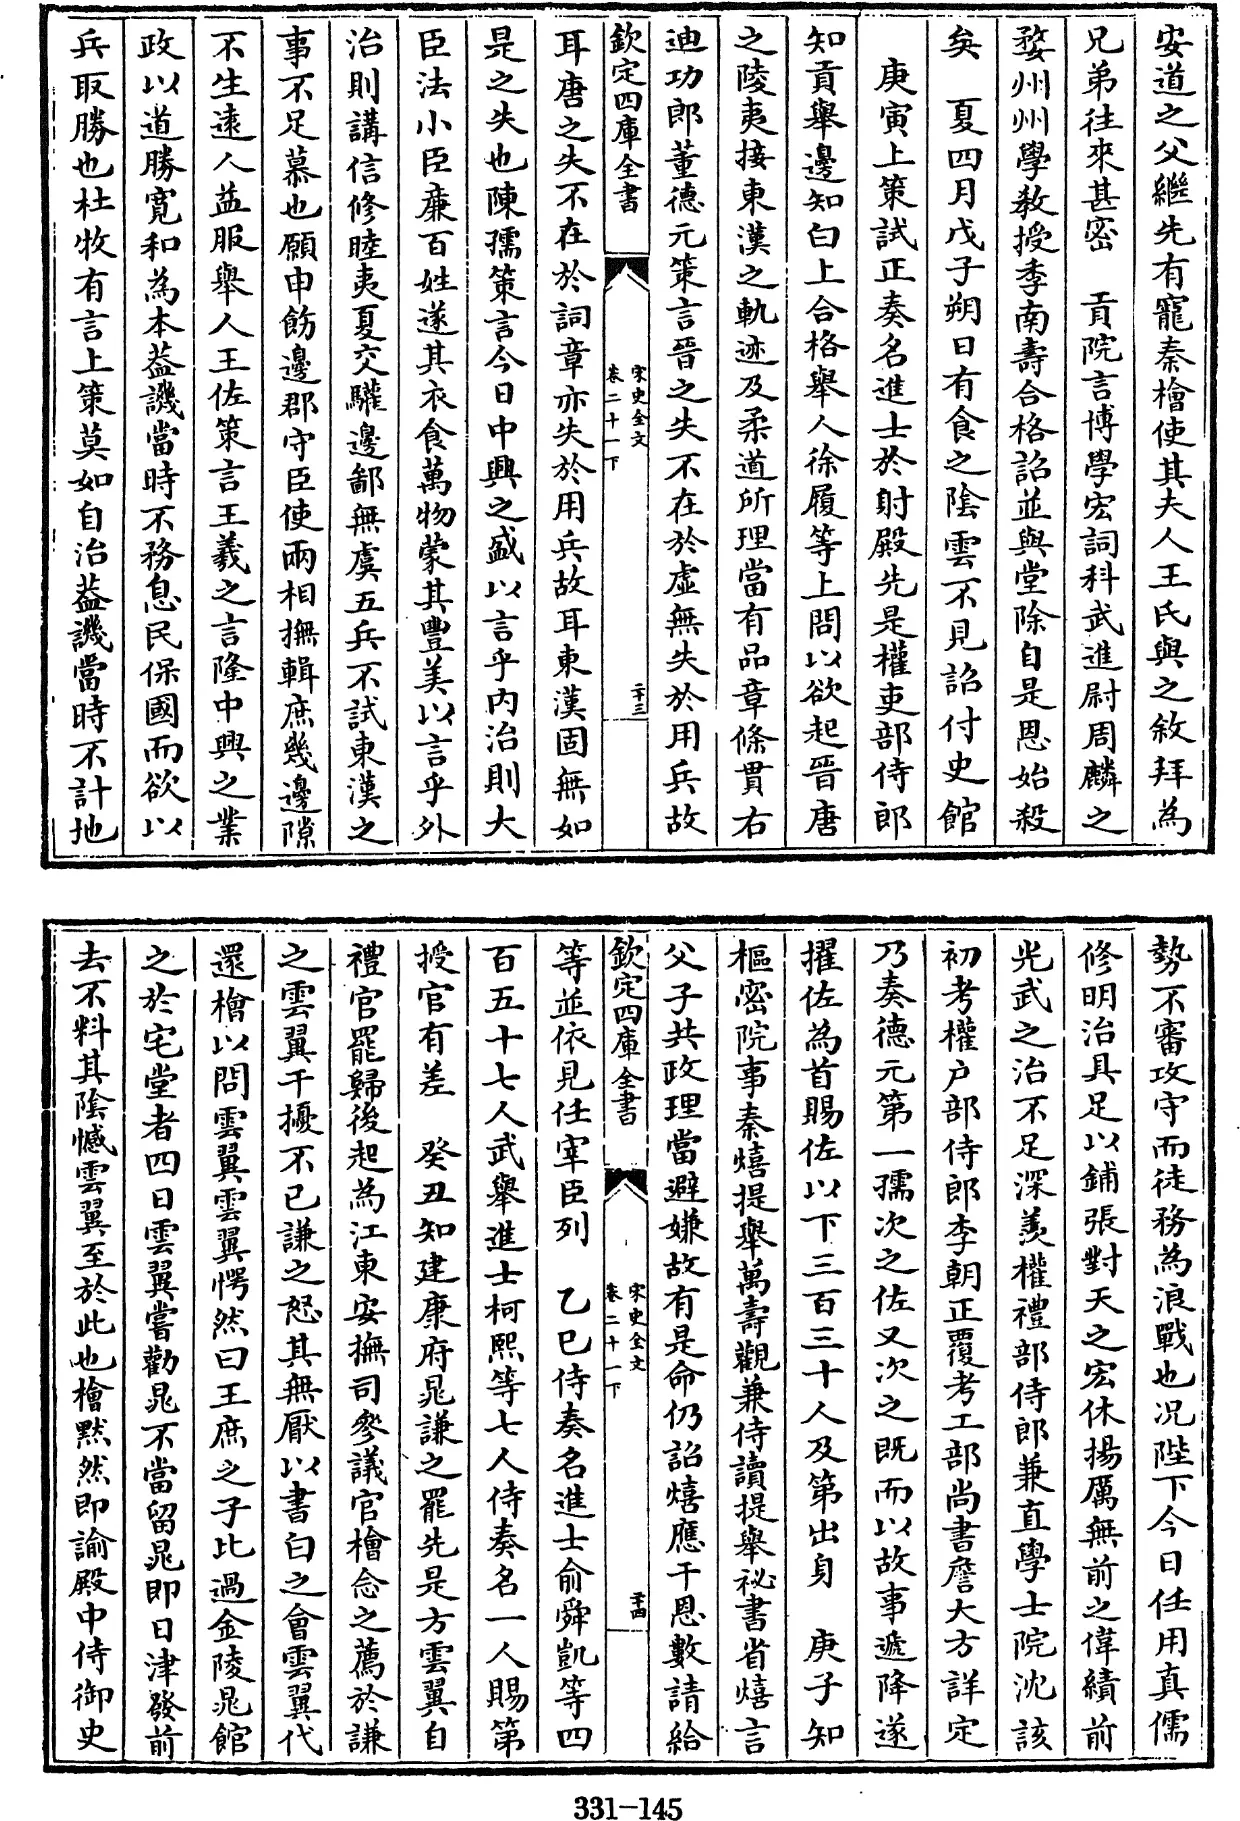 安道之父繼先有寵秦檜使其夫人王氏與之敘拜為
兄弟往來甚密　貢院言博學宏詞科武進尉周麟之
婺州州學教授季南壽合格詔並與堂除自是恩始殺
矣　夏四月戊子朔日有食之陰雲不見詔付史館
庚寅上策試正奏名進士於射殿先是權吏部侍郎
知貢舉邊知白上合格舉人徐履等上問以欲起晉唐
之陵夷接東漢之軌迹及柔道所理當有品章條貫右
迪功郎董德元策言晉之失不在於虛無失於用兵故
欽定四庫全書
宋史全文
卷二十一下
二十三
耳唐之失不在於詞章亦失於用兵故耳東漢固無如
是之失也陳孺策言今日中興之盛以言乎內治則大
臣法小臣廉百姓遂其衣食萬物蒙其豐美以言乎外
治則講信修睦夷夏交驩邊鄙無虞五兵不試東漢之
事不足慕也願申飭邊郡守臣使兩相撫輯庶幾邊隙
不生遠人益服舉人王佐策言王羲之言隆中興之業
政以道勝寬和為本葢譏當時不務息民保國而欲以
兵取勝也杜牧有言上策莫如自治葢譏當時不計地
勢不審攻守而徒務為浪戰也况陛下今日任用真儒
修明治具足以鋪張對天之宏休揚厲無前之偉績前
光武之治不足深羡權禮部侍郎兼直學士院沈該
初考權户部侍郎李朝正覆考工部尚書詹大方詳定
乃奏德元第一孺次之佐又次之既而以故事遞降遂
擢佐為首賜佐以下三百三十人及第出身　庚子知
樞密院事秦熺提舉萬壽觀兼侍讀提舉祕書省熺言
父子共政理當避嫌故有是命仍詔熺應干恩數請給
欽定四庫全書
宋史全文
卷二十一下
二十四
等並依見任宰臣列　乙巳侍奏名進士俞舜凱等四
百五十七人武舉進士柯熙等七人侍奏名一人賜第
授官有差　癸丑知建康府晁謙之罷先是方雲翼自
禮官罷歸後起為江東安撫司參議官檜念之薦於謙
之雲翼干擾不已謙之怒其無厭以書白之會雲翼代
還檜以問雲翼雲翼愕然曰王庶之子比過金陵晁館
之於宅堂者四日雲翼嘗勸晁不當留晁即日津發前
去不料其陰憾雲翼至於此也檜默然即諭殿中侍御史
331-145